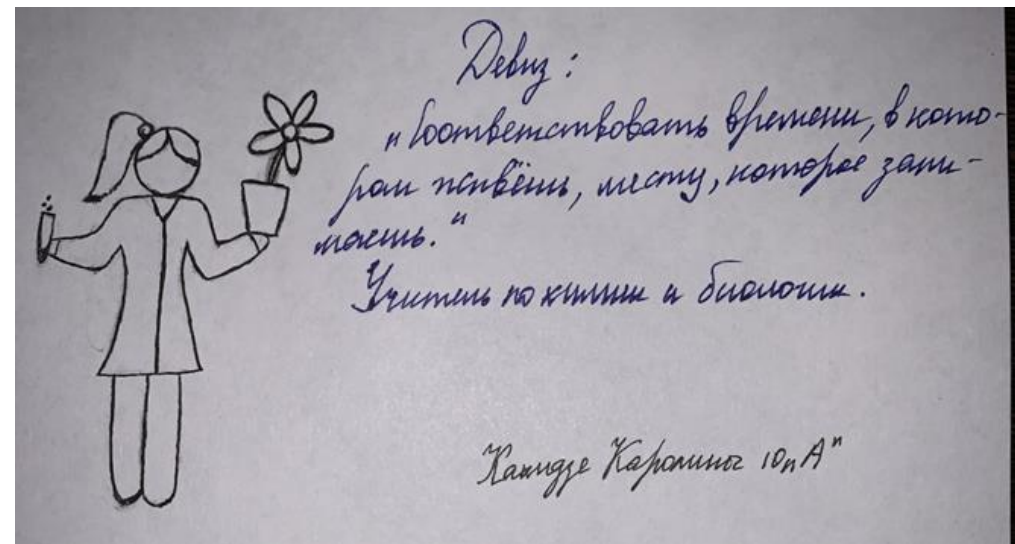 Девиз:
„Соответствовать времени, в кото-
ром живёшь, месту, которое зани-
маешь.“
Учитель по химии и биологии.
Кахидзе Каролина 10„А“